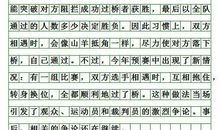 能突破对方阻拦成功过桥者获胜，最后以全队
通过的人数多少决定胜负。因此习惯上，双方
相遇时，会像山羊抵角一样，尽力使对方落下
桥，自己通过。不过，今年预赛中出现了新情
况：有一组比赛，双方选手相遇时，互相抱住，
转身换位，全都顺利地过了桥。这种做法当场
引发了观众、运动员和裁判员的激烈争论。事
后，相关的争论还在继续。